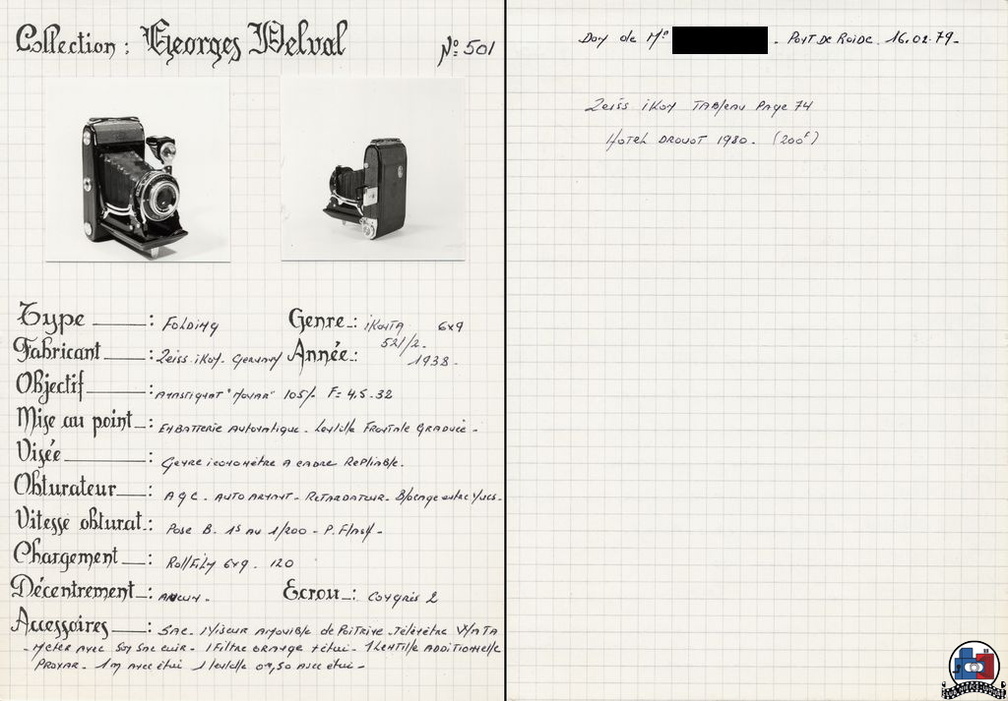 Collection : Georges Delval N° 501
Type : Folding Genre : ikonta 6x9
521/2.
Fabricant : Zeiss ikon. Germany Année : 1938.
Objectif : Anastigmat "Novar" 105/. F= 4,5-32
Mise au point : En Batterie Automatique. Lentille Frontale Graduée -
Visée : Genre iconomètre A cadre Repliable.
Obturateur : A G C. Auto Armant - Retardateur. Blocage entre Vues.
Vitesse obturat : Pose B. 1s au 1/200 - P. Flash -
Chargement : Roll Film 6x9. 120
Décentrement : Aucun. Ecrou : Congrès 2
Accessoires : Sac. 1 Viseur Amovible de Poitrine. Télémètre
- Meter Avec Son Sac cuir. 1 Filtre orange + étui. 1 Lentille Additionnelle
Proxar. 1 m Avec étui 1 lentille 0m,50 Avec étui -
Don de Mr . Pont De Roide. 16.02.79.
Zeiss ikon Tableau Page 74
Hotel Drouot 1980. (200F)